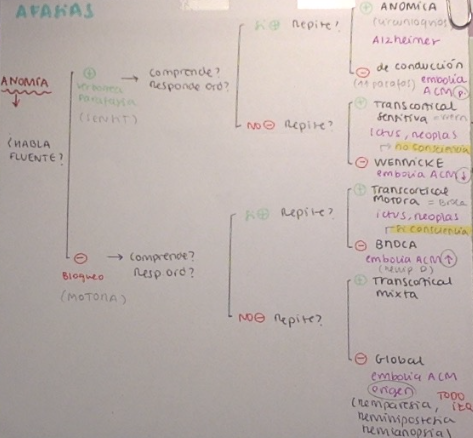 AFASIAS
ANOMÍA
¿HABLA
FLUENTE?
⊕
verborrea
(SENSIT)
→ comprende?
Responde ord?
SI ⊕ Repite?
⊕ ANOMICA
Alzheimer
⊖ de conducción
embolia
ACM (P.)
NO ⊖ Repite?
⊕ Transcortical
sensitiva
ictus, neoplas
→ no consciencia
⊖ WERNICKE
embolia ACM ↓
⊖ → comprende?
Resp. ord?
Bloqueo
(MOTORA)
SI ⊕ Repite?
⊕ Transcortical
Motora = Broca
ictus, neoplas
→ SI consciencia
⊖ BROCA
embolia ACM ↑
(hemip D)
NO ⊖ Repite?
⊕ Transcortical
mixta
⊖ Global
embolia ACM
origen TODO
(hemiparesia, izq
hemianopsia)